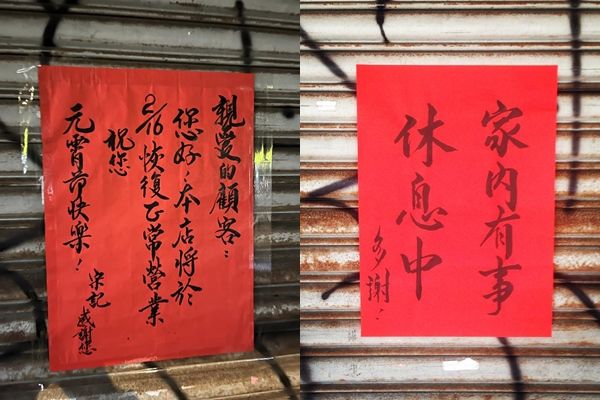 親愛的顧客：
您好：本店將於
2/16 恢復正常營業
祝您
元宵節快樂！
宋記 感謝您
家內有事
休息中
多謝！